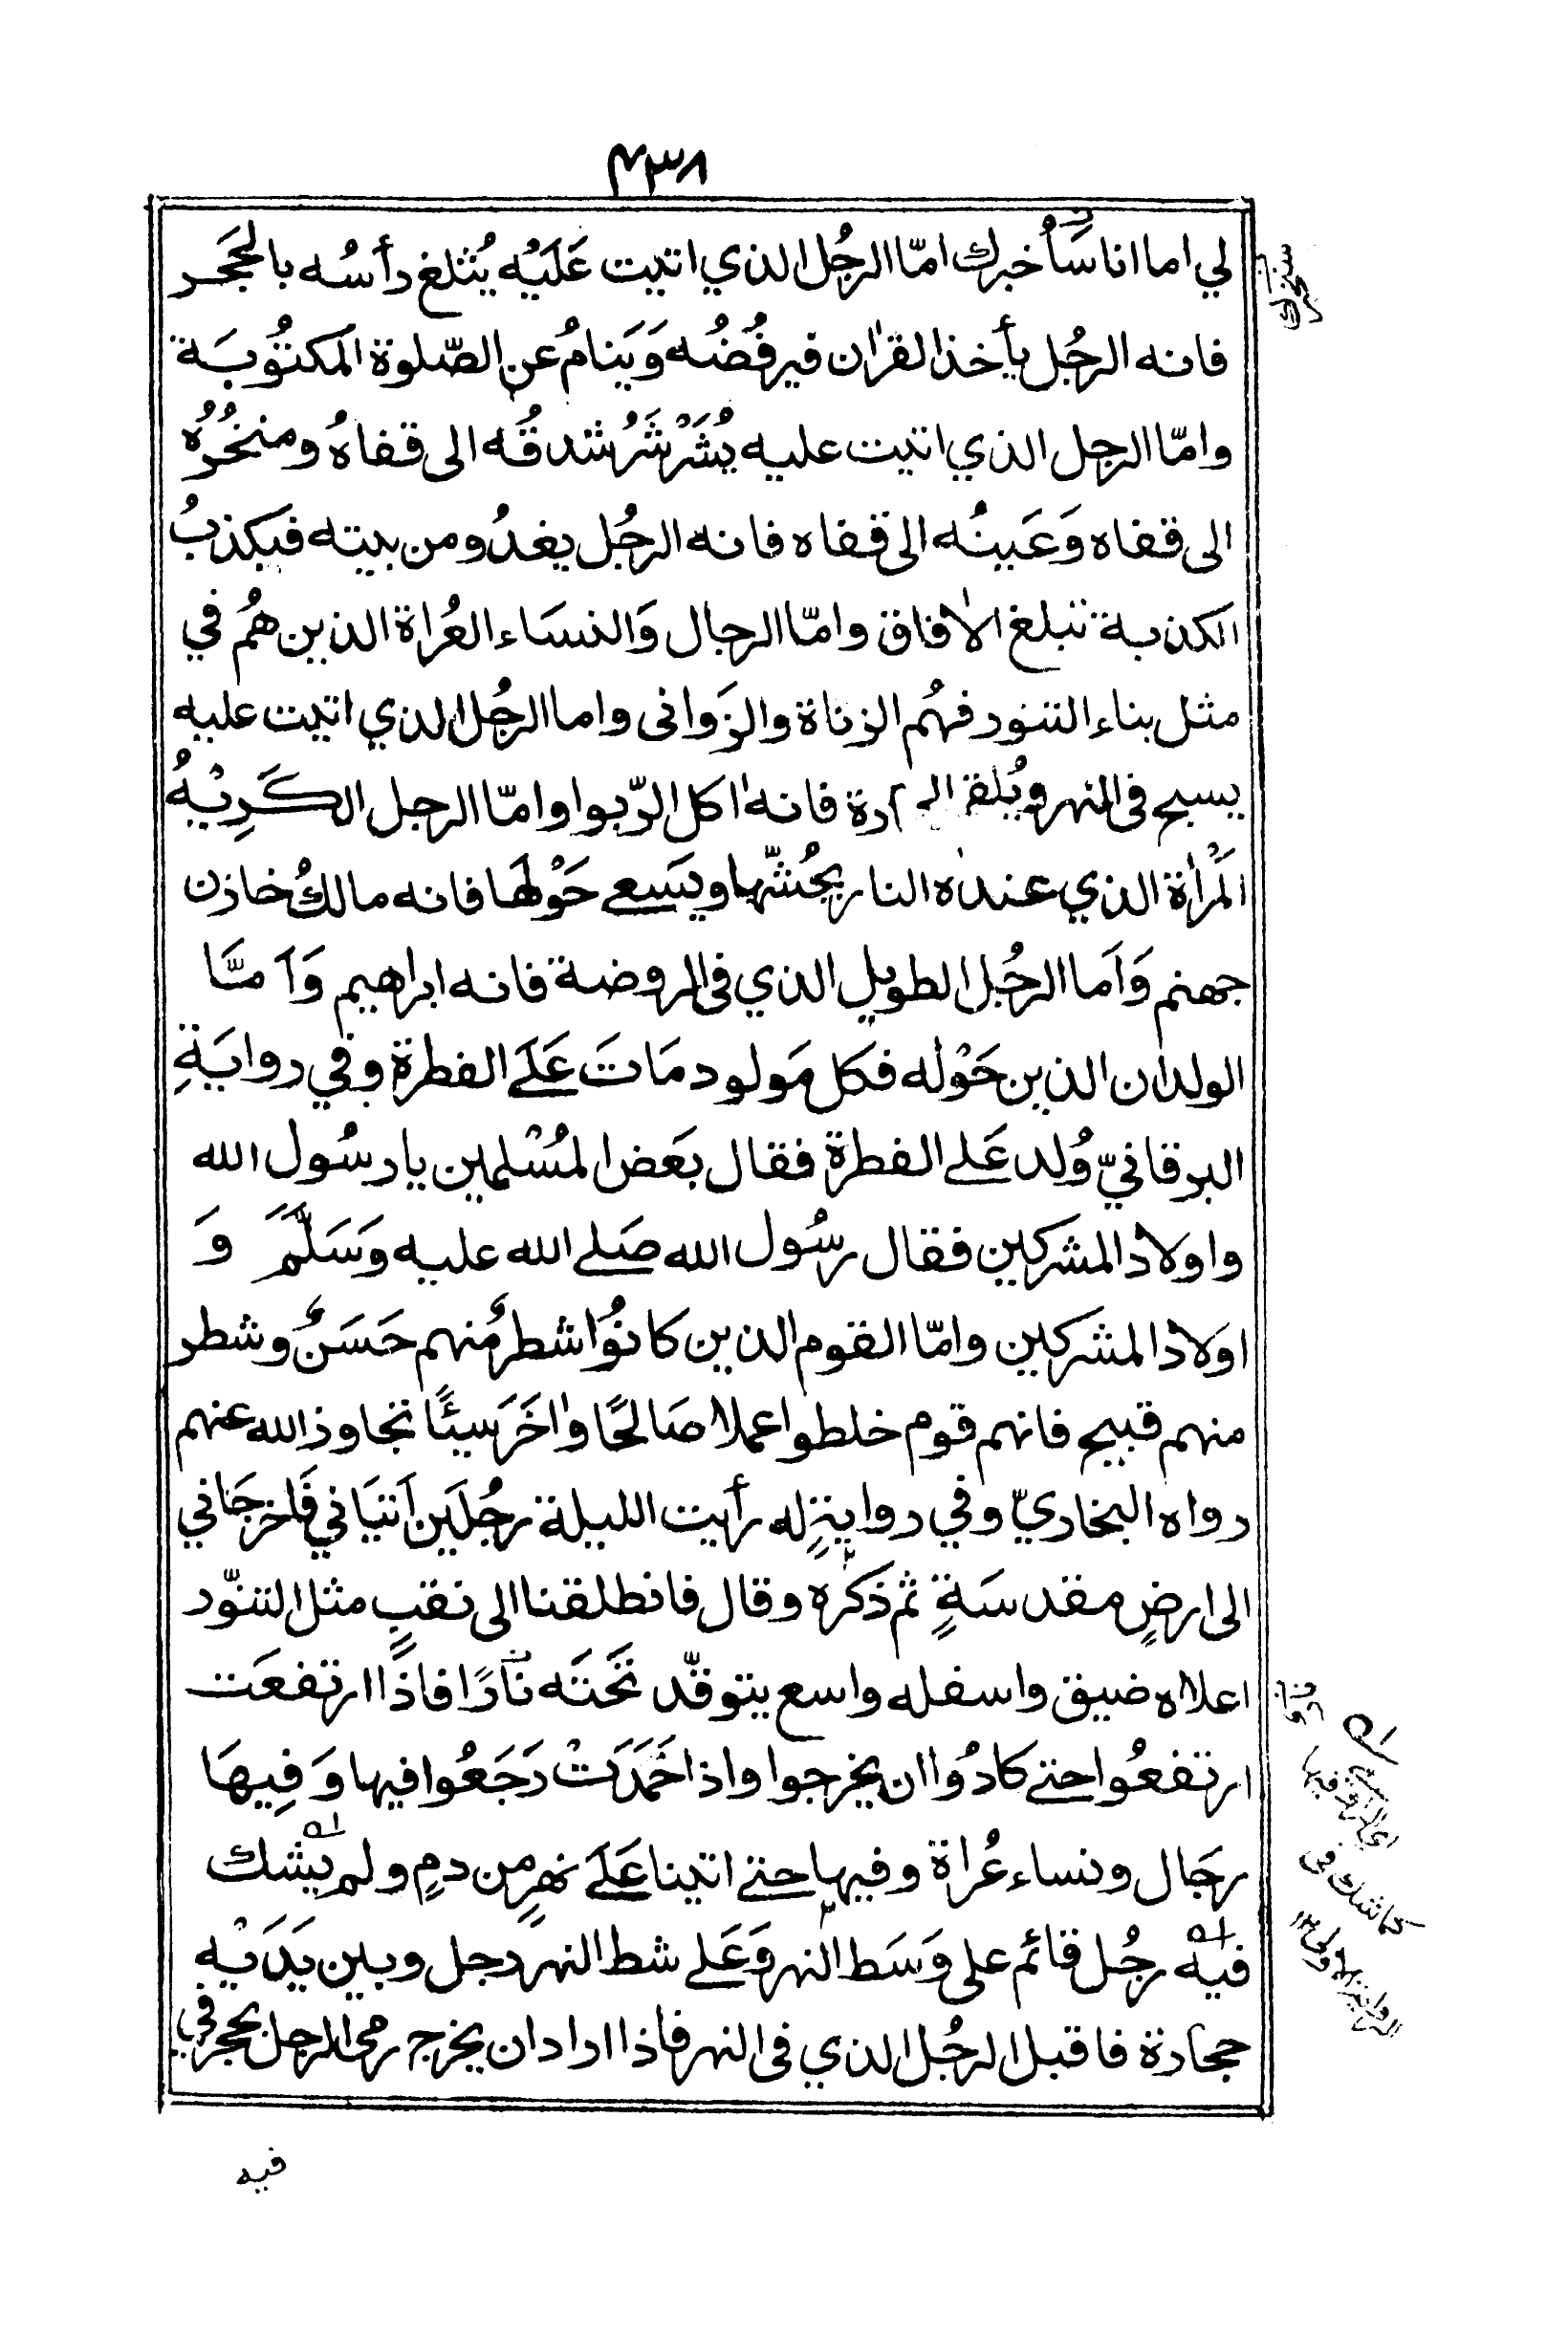 ٤٣٨
لي اما انا سَأُخبرك امّا الرجُل الذي اتيت عَلَيْه يُثلغ رأسُه بالحَجَر
فانه الرجُل يأخذ القراٰن فيرفُضُه وَيَنامُ عن الصّلوة المَكتُوبَة
وامّا الرجل الذي اتيت عليه يُشَرْشَرُ شدقُه الى قفاهُ ومنخُرُه
الى قفاه وَعَينُه الى قفاه فانه الرجُل يغدُو من بيته فيَكذبُ
الكذبة تبلغ الاٰفاق وامّا الرجال وَالنسَاء العُراة الذين هُم في
مثل بناء التنور فهُم الزناة والزَواني واما الرجُل الذي اتيت عليه
يسبح في النهر ويُلقم الحجارة فانه اٰكل الرّبوا وامّا الرجل الكَرِيْهُ
المَرْاٰة الذي عنده النار يحُشّها ويَسعى حَوْلها فانه مالكُ خازن
جهنم وَاَما الرجُل الطويل الذي في الروضة فانه ابراهيم وَاَمّا
الولدان الذين حَوْله فكل مَولود مَاتَ عَلَى الفطرة وفي روايَةِ
البرقانيّ وُلد عَلى الفطرة فقال بَعض المُسْلمين يا رسُول الله
واولاد المشركين فقال رسُول الله صَلى الله عليه وَسَلَّمَ وَ
اولاد المشركين وامّا القوم الذين كانُوا شطرٌ منهم حَسَنٌ وشطر
منهم قبيح فانهم قوم خلطوا عملا صَالحًا واٰخَرَ سَيئًا تجاوز الله عنهم
رواه البخاريّ وفي روايةٍ له رأيت الليلة رجُلَين اَتيَاني فَاخرجَاني
الى ارضٍ مقدسَةٍ ثم ذَكَره وقال فانطلقنا الى نقبٍ مثل التنّور
اعلاه ضيق واسفله واسع يتوقّد تَحتَه نَارًا فاذَا ارتفعَت
ارتفعُوا حتى كادُوا ان يخرجوا واذا خَمَدَتْ رَجَعُوا فيها وَفِيهَا
رجَال ونساء عُراة وفيها حتى اتينا عَلَى نهرٍ من دمٍ ولم يشك
فيه رجُل قائم على وَسَط النهر وَعَلى شط النهر رجل وبين يَدَيْهِ
حجارة فاقبل الرجُل الذي في النهر فاذا اراد ان يخرج رمى الرجل بحجر في
فيه
سنخبرك